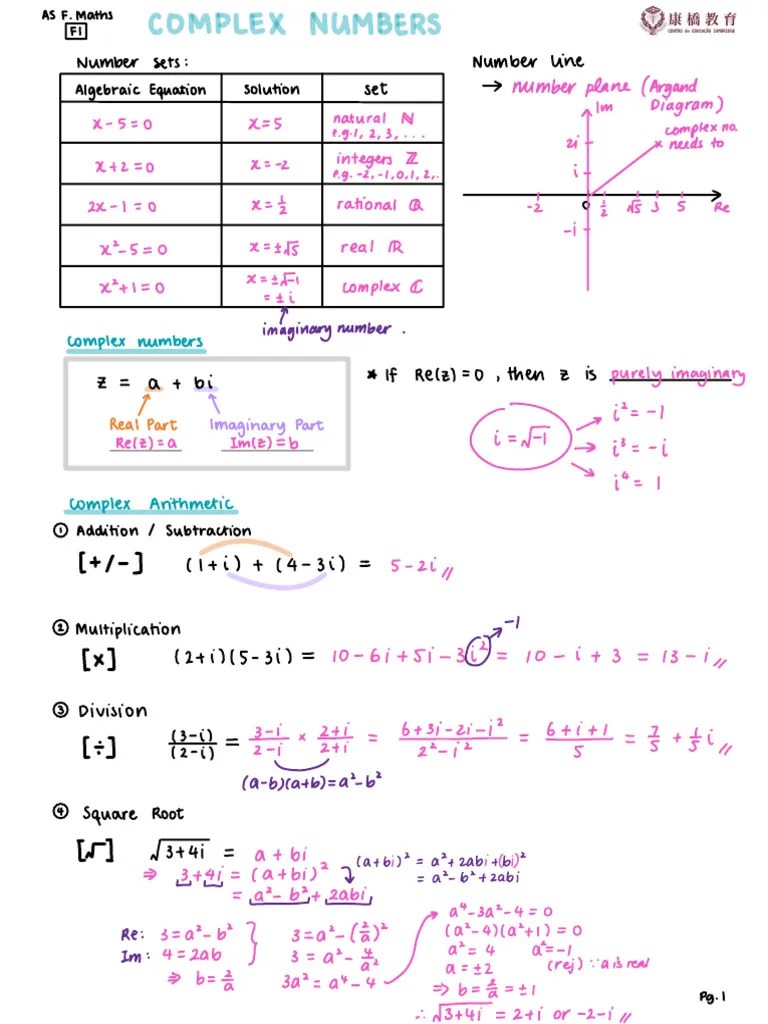 AS F. Maths
F1
COMPLEX NUMBERS
康橋教育
CENTRO de EDUCAÇÃO CAMBRIDGE
Number sets:
Algebraic Equation | Solution | set
x-5=0 | x=5 | natural ℕ
e.g. 1, 2, 3, ...
x+2=0 | x=-2 | integers ℤ
e.g. -2, -1, 0, 1, 2, ..
2x-1=0 | x=1/2 | rational ℚ
x²-5=0 | x=±√5 | real ℝ
x²+1=0 | x=±√-1 | complex ℂ
= ±i
imaginary number.
Number Line
→ number plane (Argand
Diagram)
Im
complex no.
needs to
2i
i
-2 0 1/2 √5 3 5 Re
-i
Complex numbers
z = a + bi
Real Part Imaginary Part
Re(z)=a Im(z)=b
* If Re(z)=0, then z is purely imaginary
i=√-1
i²=-1
i³=-i
i⁴=1
Complex Arithmetic
① Addition / Subtraction
[+/-] (1+i) + (4-3i) = 5-2i //
② Multiplication
-1
[x] (2+i)(5-3i) = 10-6i+5i-3i² = 10-i+3 = 13-i //
③ Division
[÷] (3-i)/(2-i) = 3-i/2-i × 2+i/2+i = 6+3i-2i-i²/2²-i² = 6+i+1/5 = 7/5 + 1/5 i //
(a-b)(a+b)=a²-b²
④ Square Root
[√] √3+4i = a+bi
⇒ 3+4i = (a+bi)²
= a²-b²+2abi
(a+bi)² = a²+2abi+(bi)²
= a²-b²+2abi
Re: 3=a²-b²
Im: 4=2ab
⇒ b=2/a
3=a²-(2/a)²
3=a²-4/a²
3a²=a⁴-4
a⁴-3a²-4=0
(a²-4)(a²+1)=0
a²=4 a²=-1
a=±2 (rej) ∵ a is real
⇒ b=2/a=±1
∴ √3+4i = 2+i or -2-i //
Pg. 1